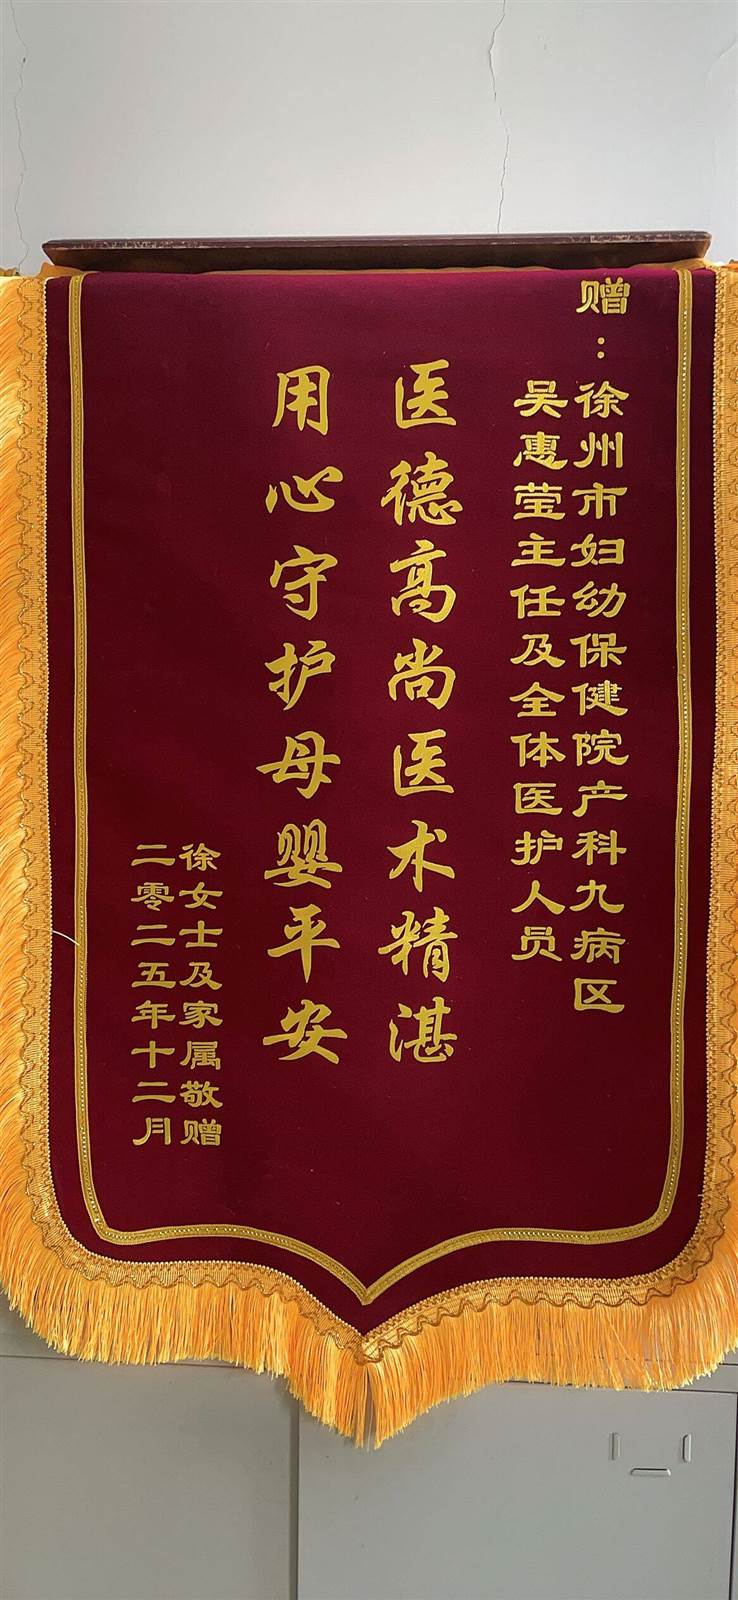 赠：徐州市妇幼保健院产科九病区
吴惠莹主任及全体医护人员
医德高尚医术精湛
用心守护母婴平安
徐女士及家属敬赠
二零二五年十二月